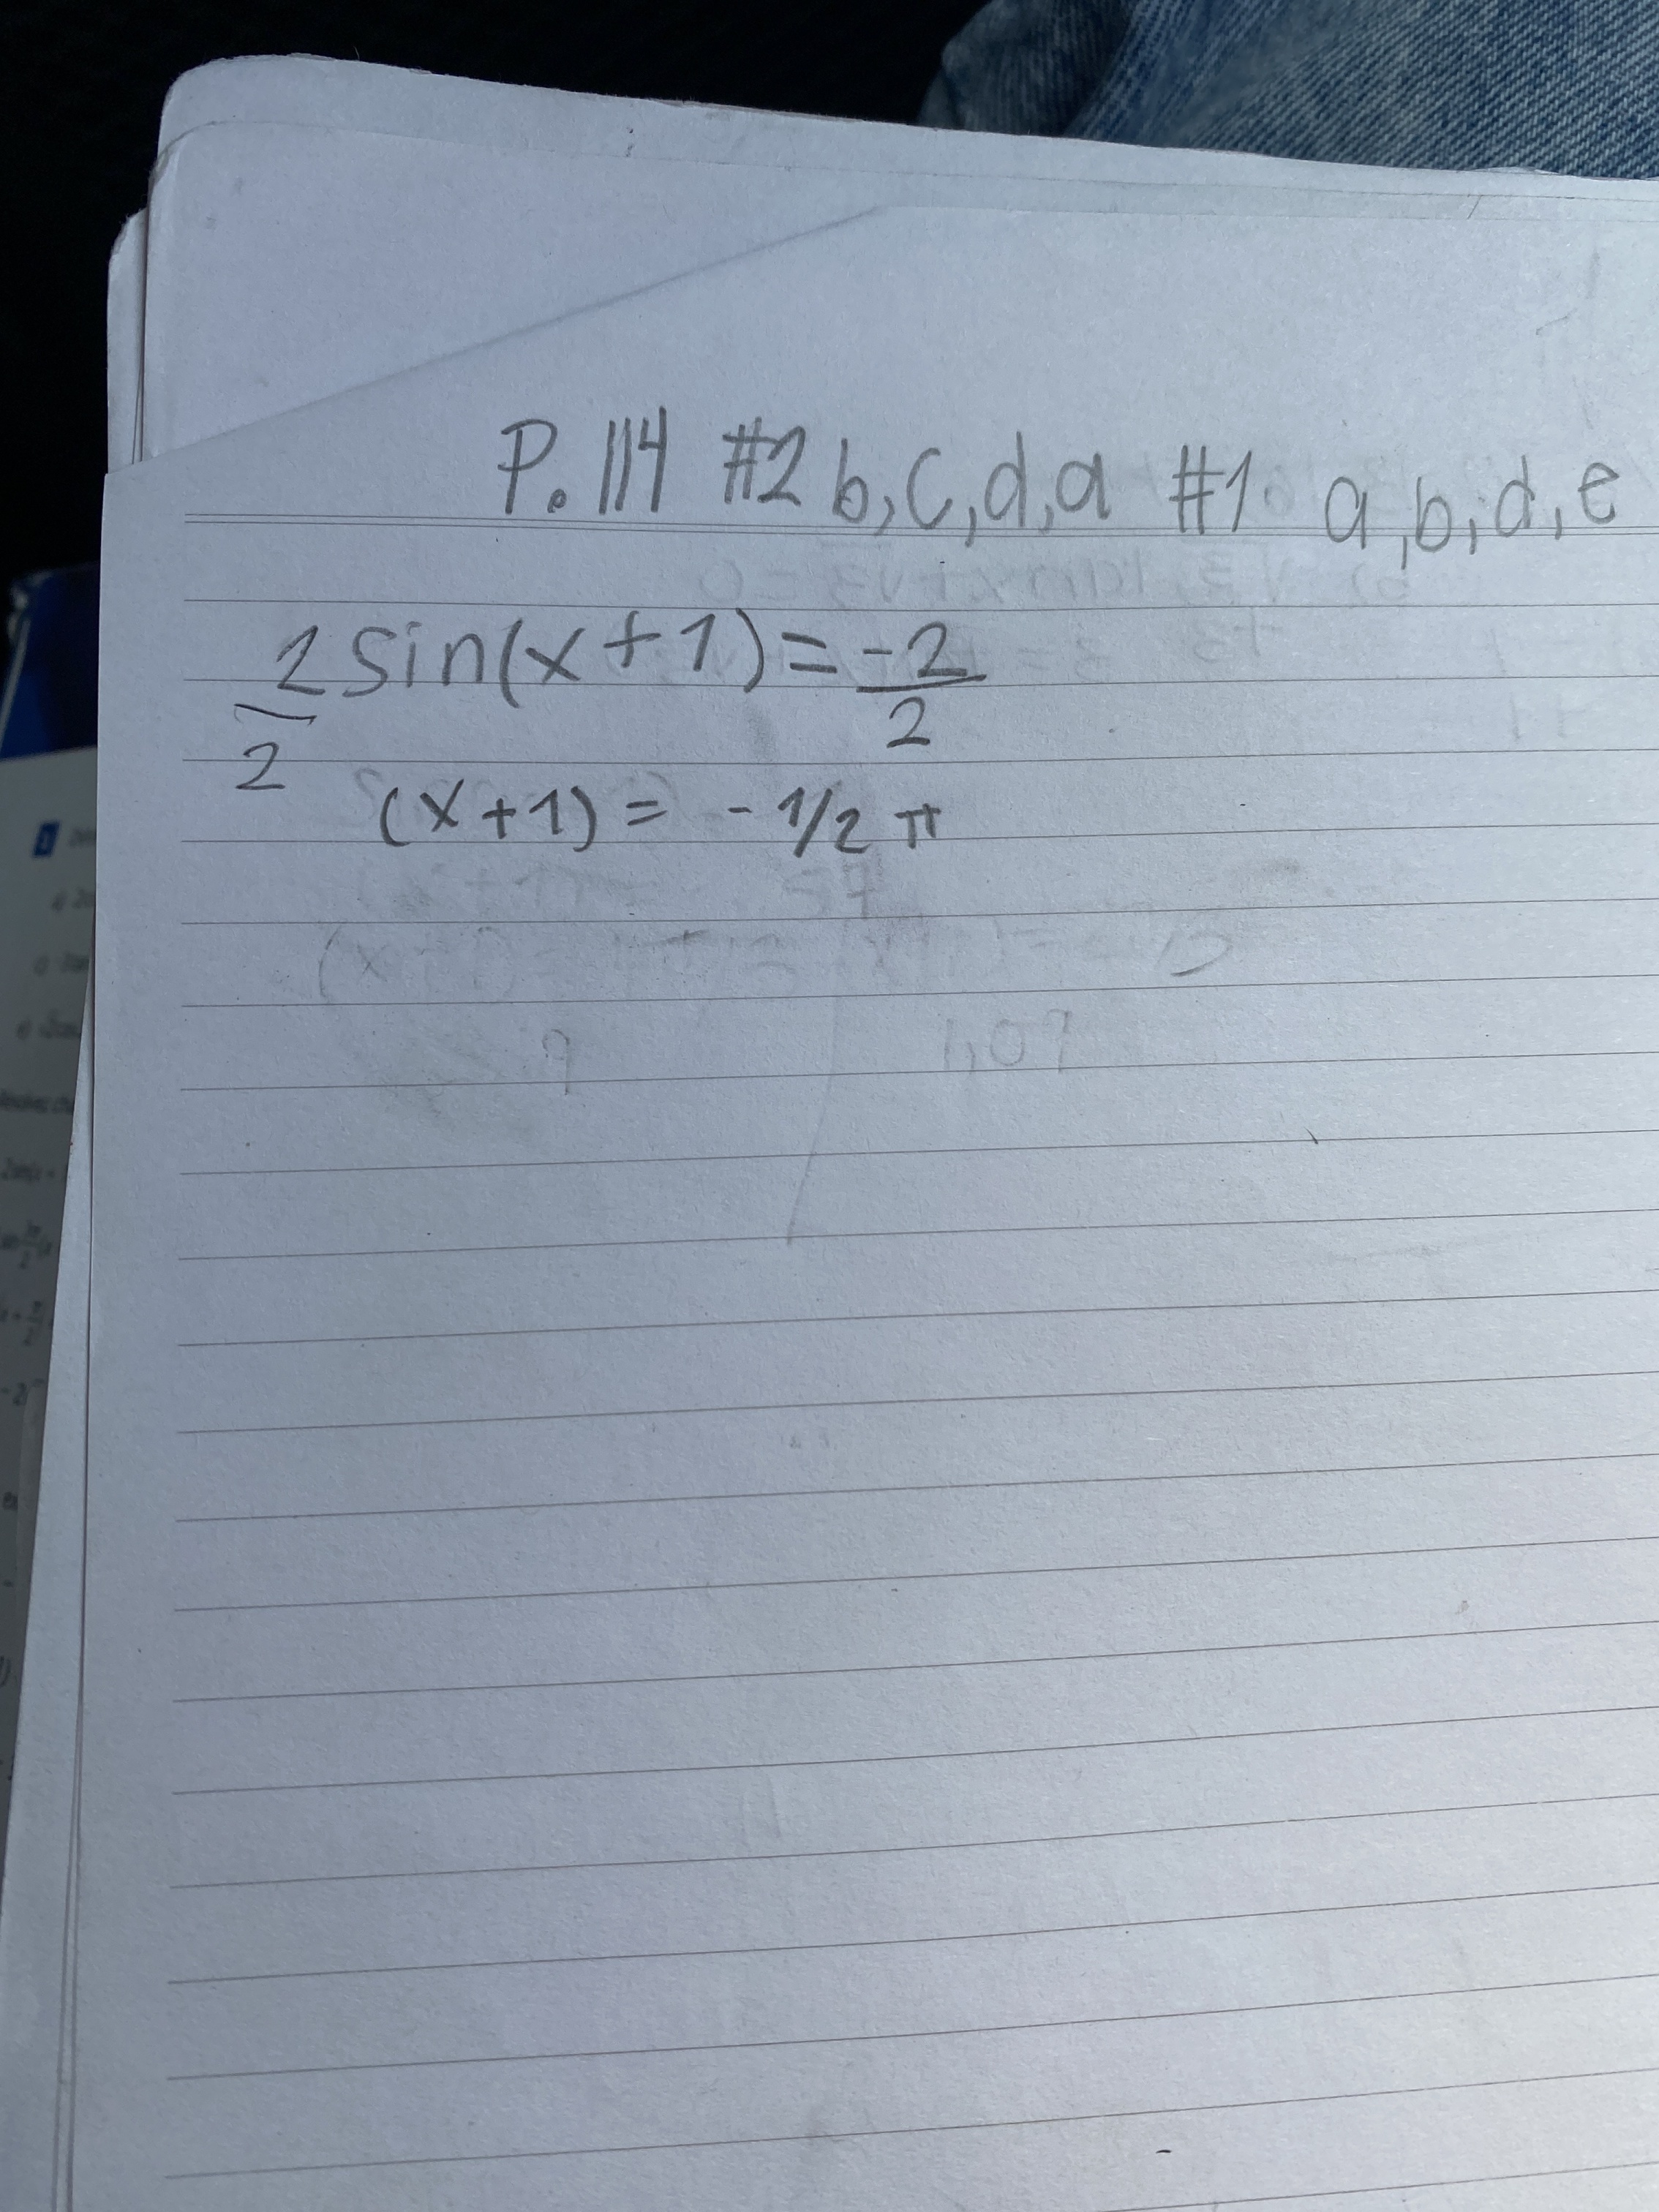 P. 114 #2 b, c, d, a #1. a, b, d, e
2 sin(x+1) = -2
2 2
(x+1) = - 1/2 π